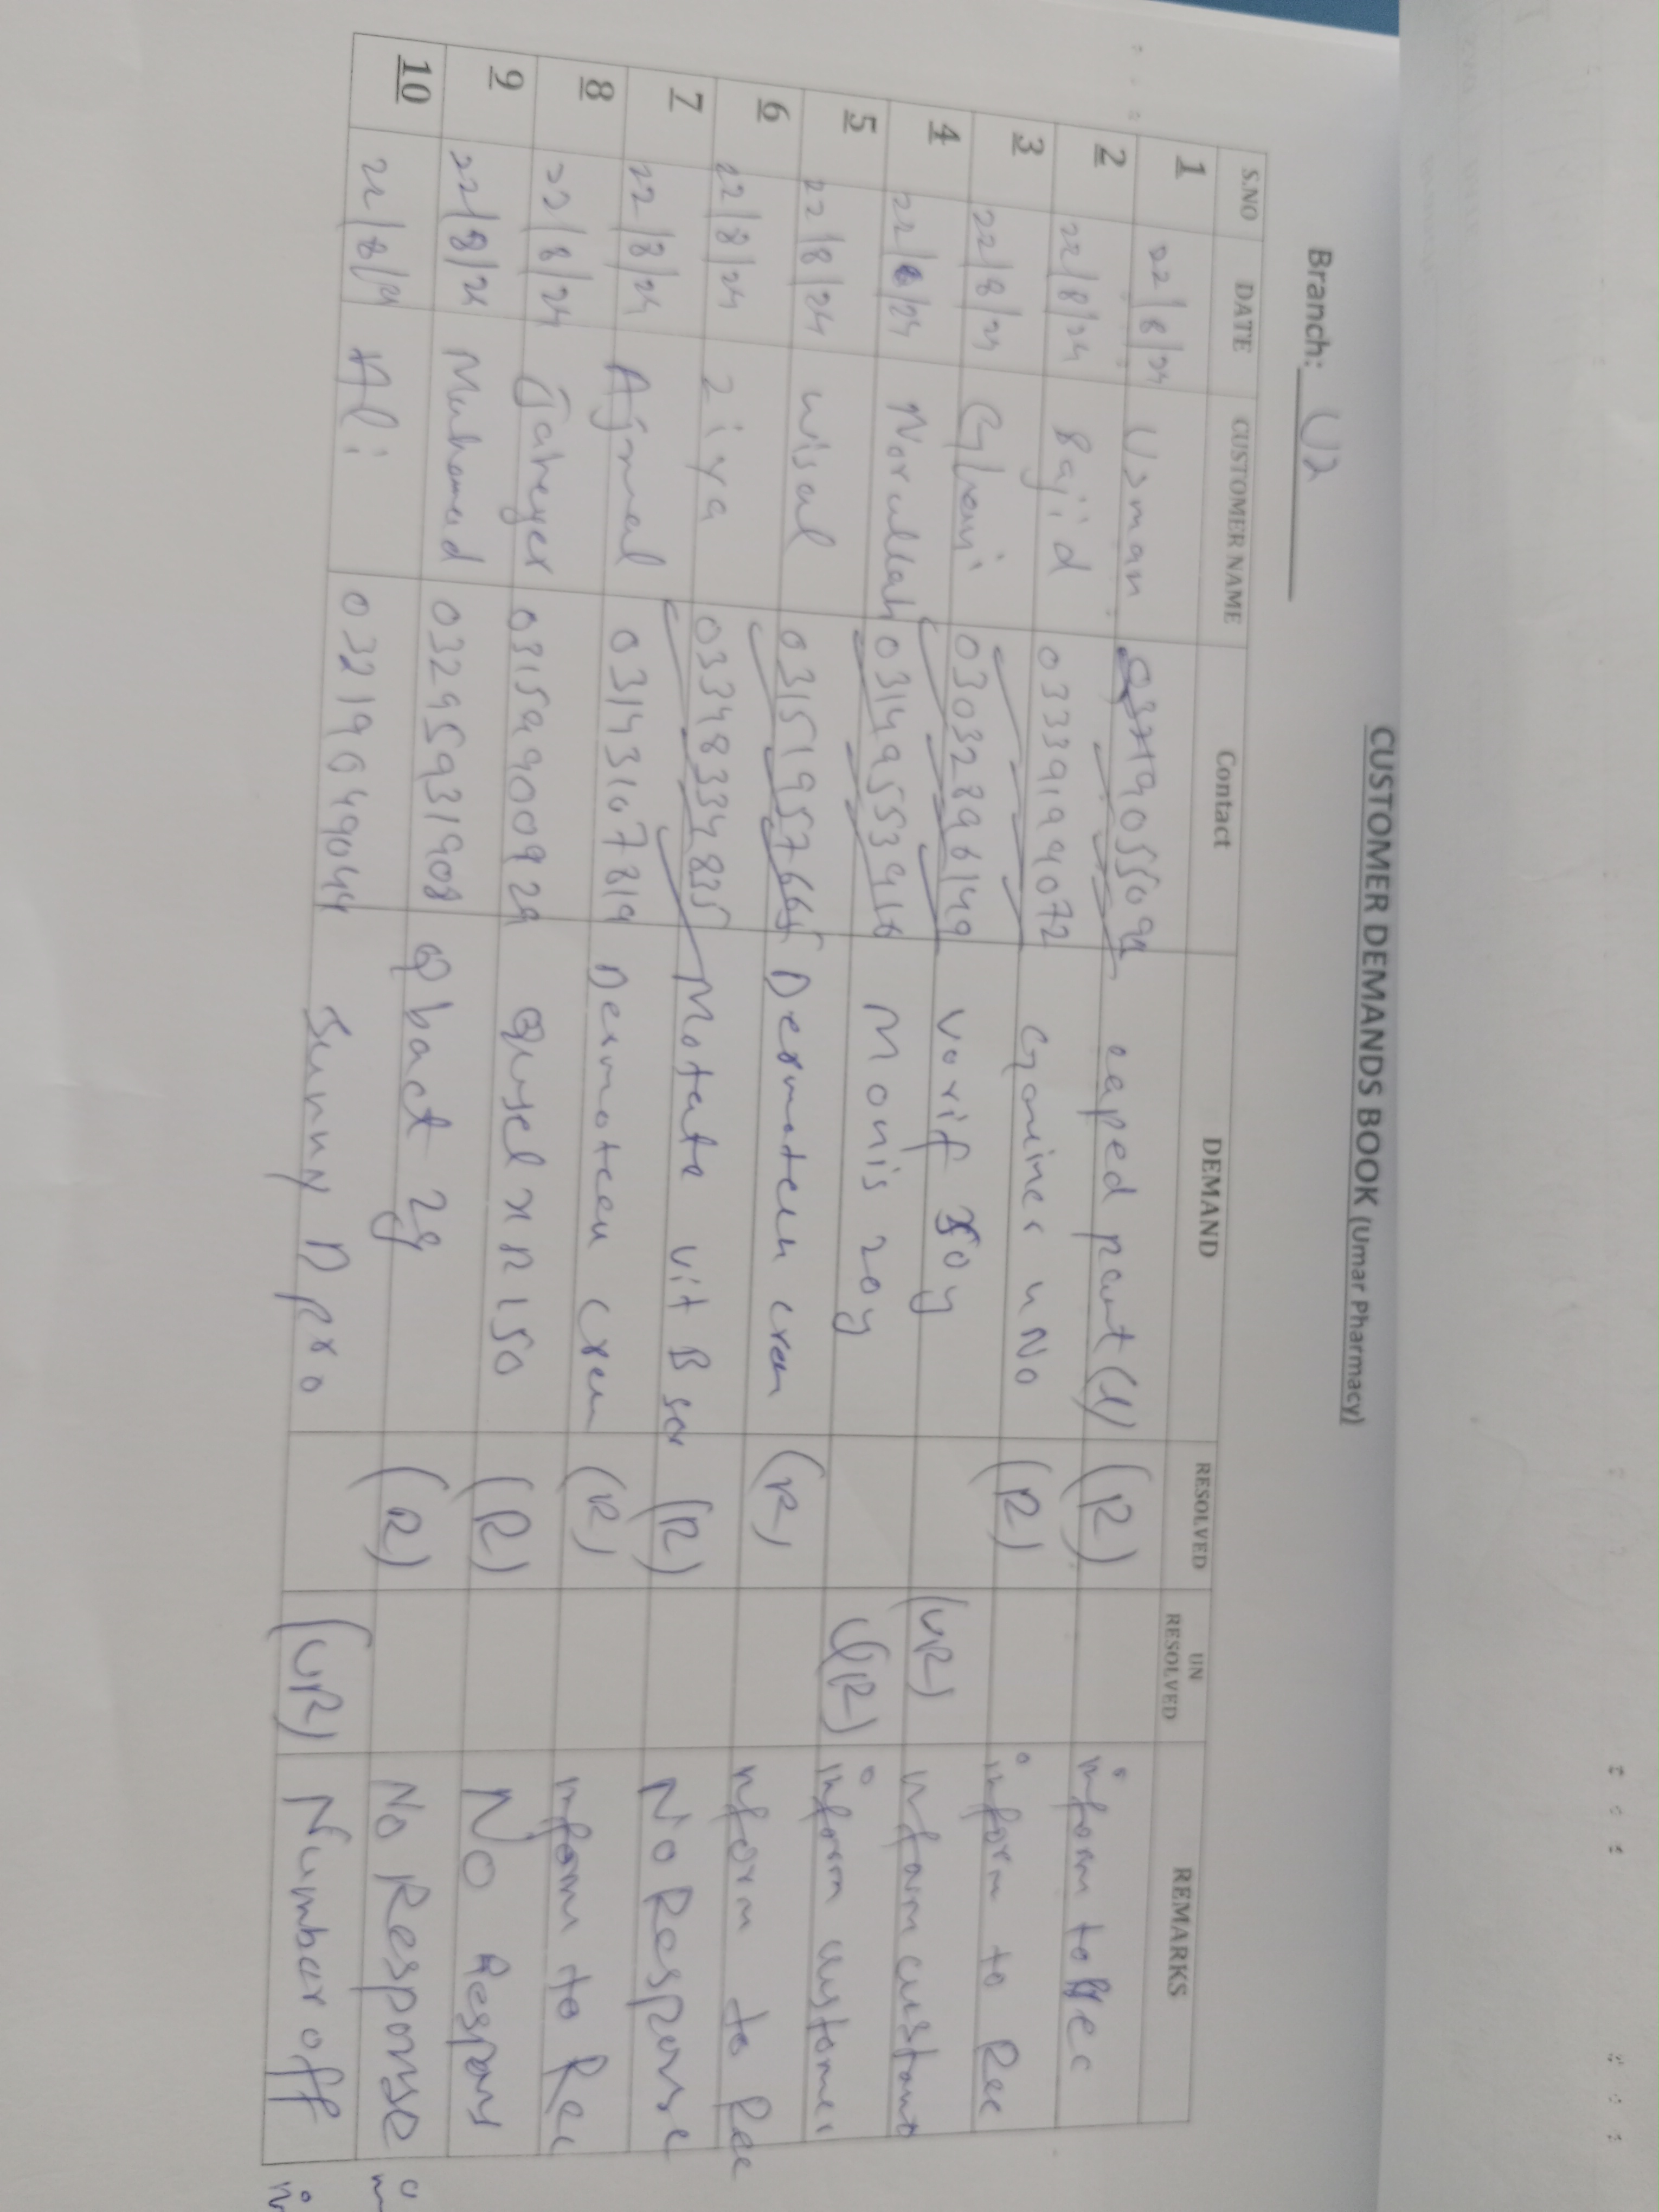 CUSTOMER DEMANDS BOOK (Umar Pharmacy)
Branch: U2
S.NO DATE CUSTOMER NAME Contact DEMAND RESOLVED UN RESOLVED REMARKS
1 22/8/24 Usman (R) inform to Rec
2 22/8/24 Sajid 03339194072 Gominer (R) inform to Rec
3 22/8/24 03032896149 vorif (UR) inform
4 22/8/24 Norullah Monis 20y (UR) inform customer
5 22/8/24 wisal 03151957665 Dermoteen cream (R) inform to Rec
6 22/8/24 Ziya 03348334835 Motate vit B (R) No Response
7 22/8/24 Ajmal 03143107819 Dermoteen cream (R) inform to Rec
8 22/8/24 03159900929 Qusel x R 150 (R) No Respons
9 22/8/24 Muhamad 03295931908 Qbact 2g (R) No Response
10 22/8/24 Ali 03219049044 Sunny D pro (UR) Number off